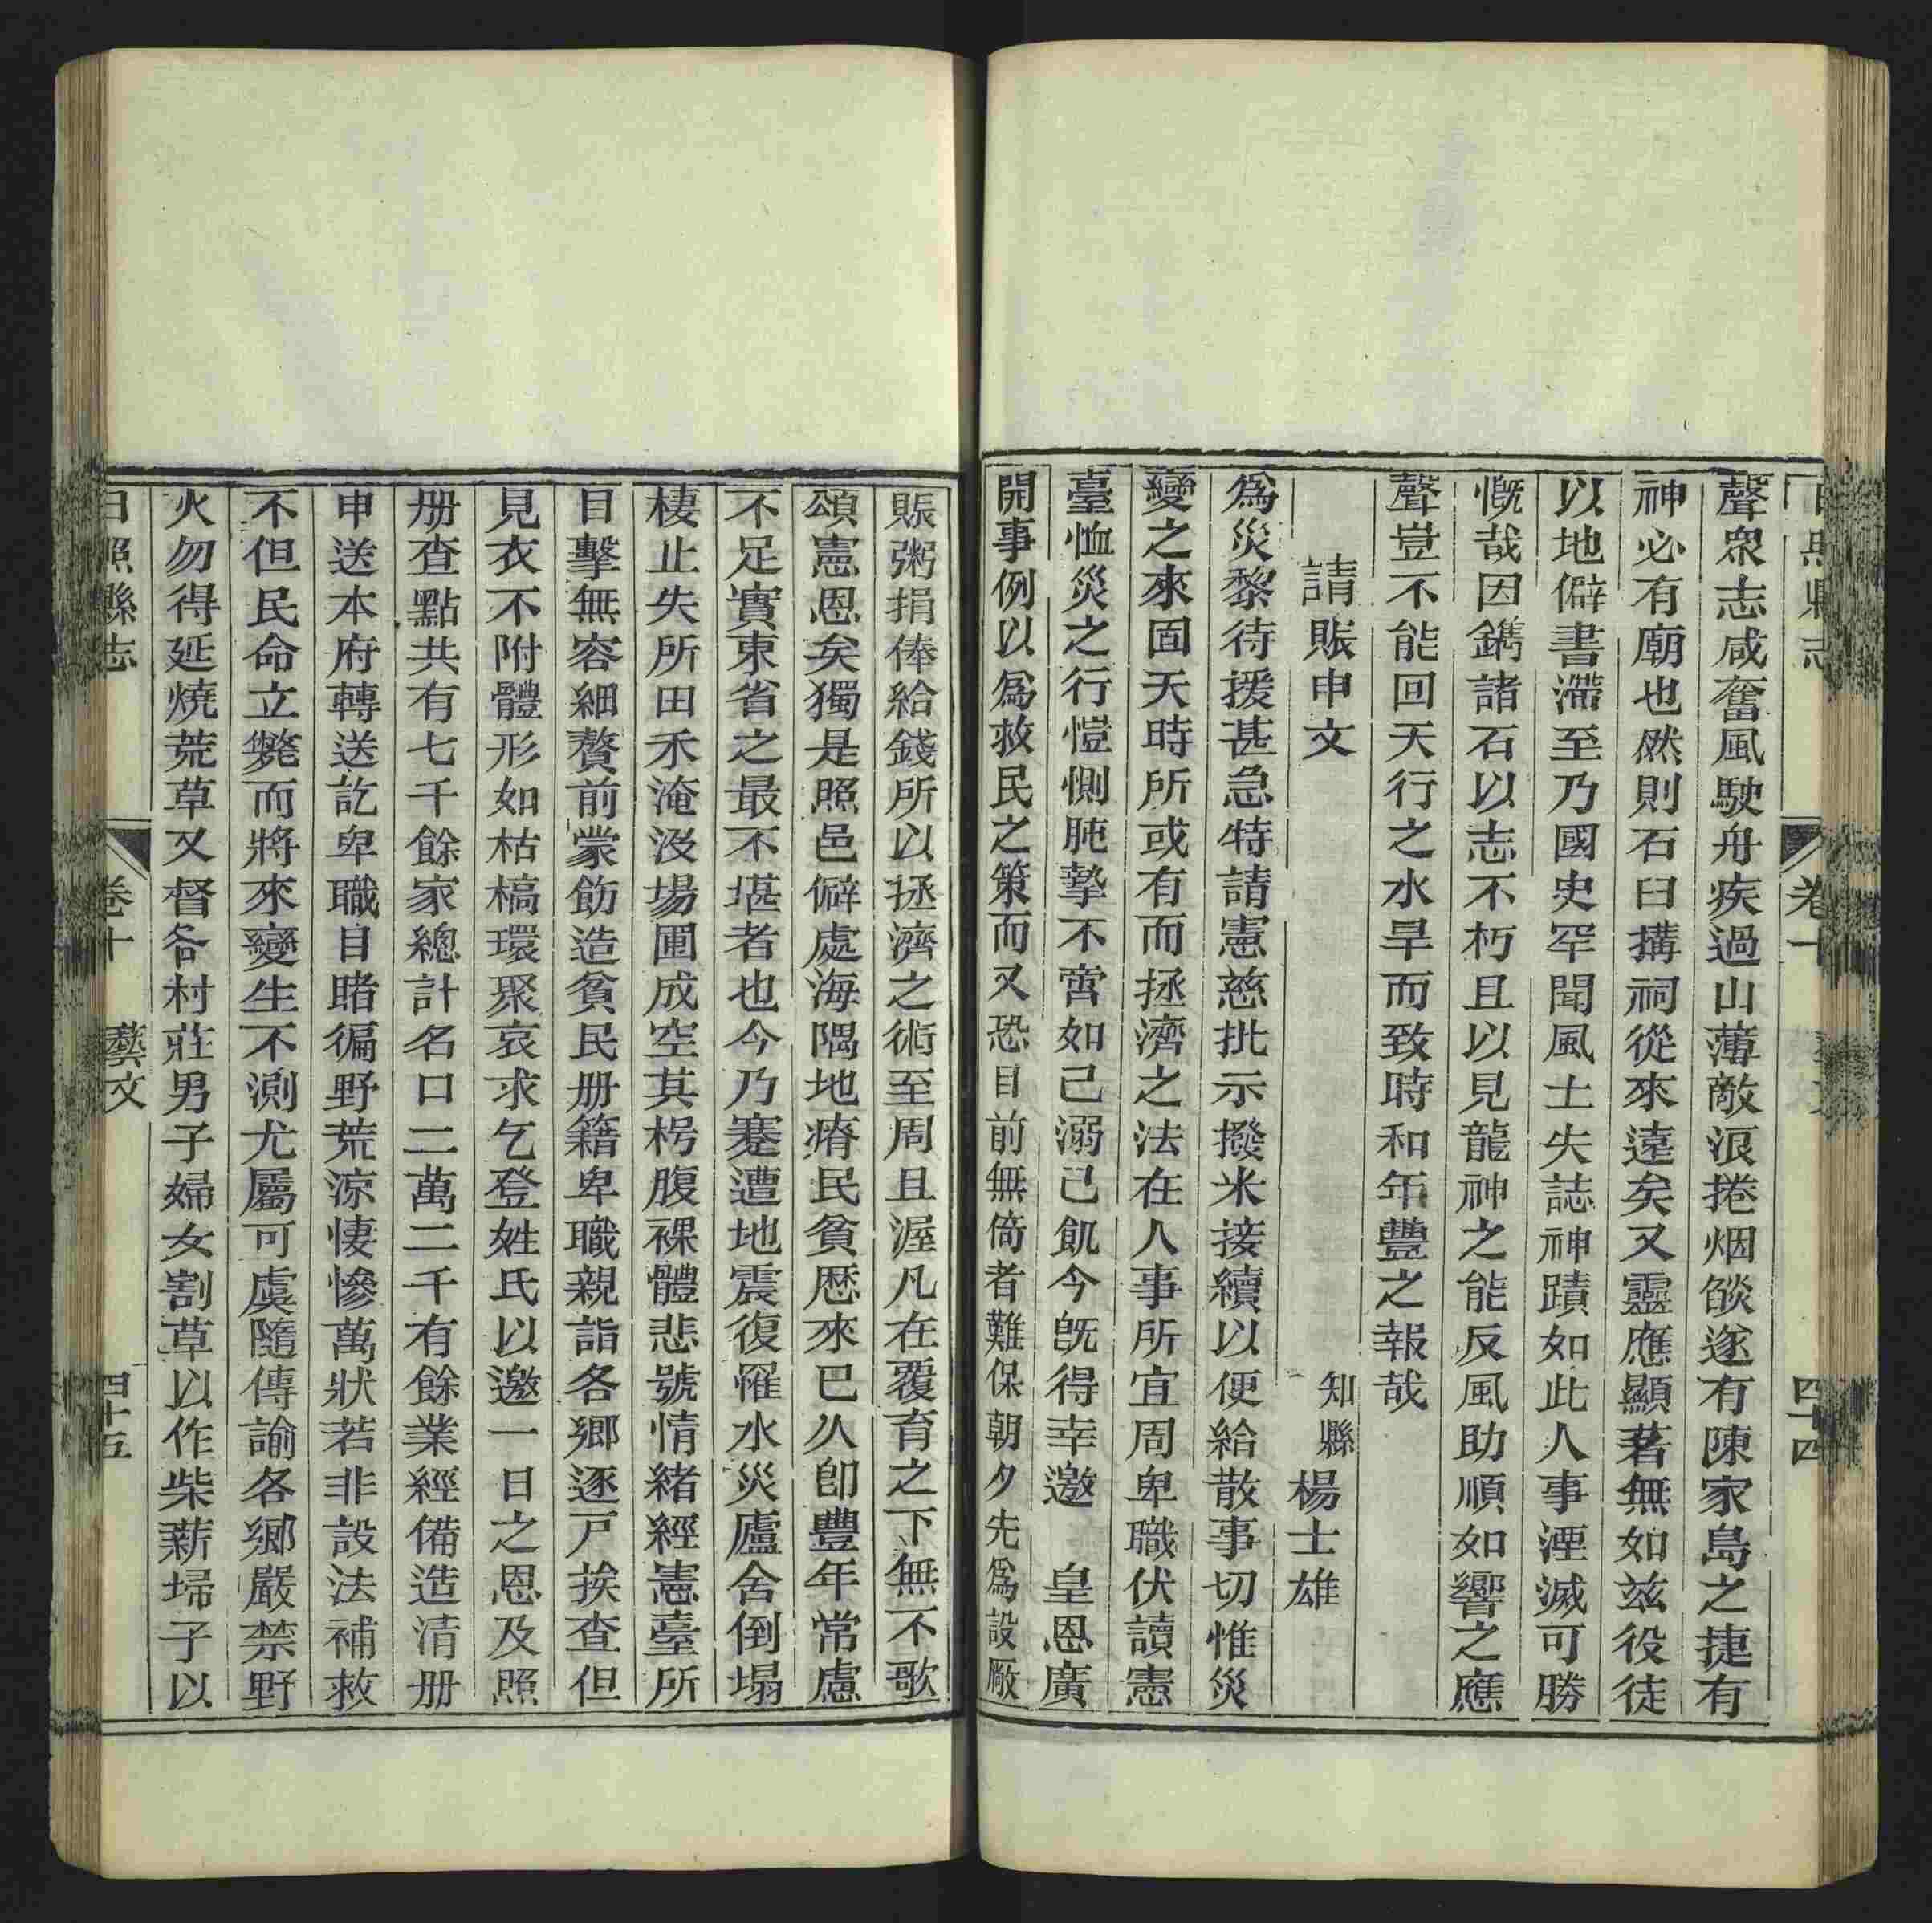 日照縣志 卷十 四十四
聲衆志咸奮風駛舟疾過山薄敵浪捲烟燄遂有陳家島之捷有
神必有廟也然則石臼搆祠從來遠矣又靈應顯著無如玆役徒
以地僻書滯至乃國史罕聞風土失誌神蹟如此人事湮滅可勝
慨哉因鐫諸石以志不朽且以見龍神之能反風助順如響之應
聲豈不能回天行之水旱而致時和年豐之報哉
請賑申文
知縣楊士雄
爲災黎待援甚急特請憲慈批示撥米接續以便給散事切惟災
變之來固天時所或有而拯濟之法在人事所宜周卑職伏讀憲
臺恤災之行愷惻肫摯不啻如己溺己飢今旣得幸邀 皇恩廣
開事例以爲救民之策而又恐目前無倚者難保朝夕先爲設厰
賑粥捐俸給錢所以拯濟之術至周且渥凡在覆育之下無不歌
頌憲恩矣獨是照邑僻處海隅地瘠民貧歷來已久卽豐年常慮
不足實東省之最不堪者也今乃蹇遭地震復罹水災廬舍倒塌
棲止失所田禾淹沒場圃成空其枵腹裸體悲號情緒經憲臺所
目擊無容細贅前蒙飭造貧民册籍卑職親詣各鄉逐戸挨查但
見衣不附體形如枯槁環聚哀求乞登姓氏以邀一日之恩及照
册查點共有七千餘家總計名口二萬二千有餘業經備造清册
申送本府轉送訖卑職目睹徧野荒涼悽慘萬狀若非設法補救
不但民命立斃而將來變生不測尤屬可虞隨傳諭各鄉嚴禁野
火勿得延燒荒草又督各村莊男子婦女割草以作柴薪埽子以
日照縣志 卷十 藝文 四十五